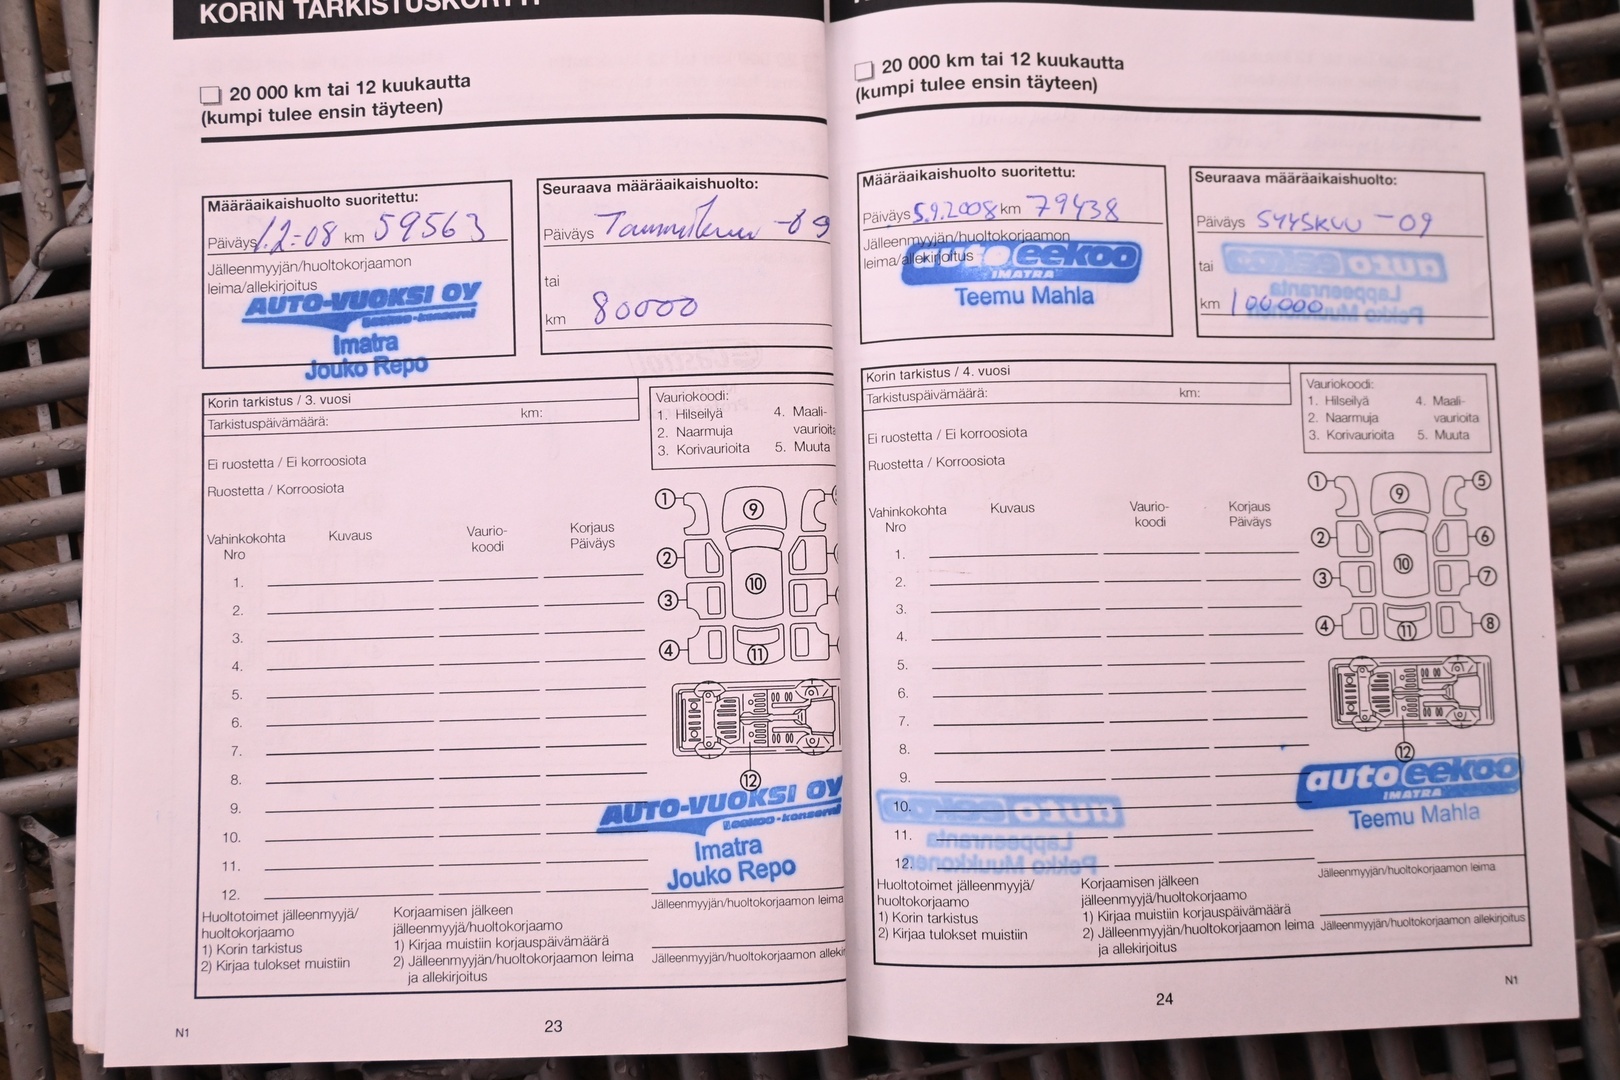 KORIN TARKISTUSKORTTI
20 000 km tai 12 kuukautta
(kumpi tulee ensin täyteen)
Määräaikaishuolto suoritettu:
Päiväys 1.2-08 km 59563
Jälleenmyyjän/huoltokorjaamon
leima/allekirjoitus
AUTO-VUOKSI OY
Imatra
Jouko Repo
Seuraava määräaikaishuolto:
Päiväys Tammikuu -09
tai
km 80000
Korin tarkistus / 3. vuosi
Tarkistuspäivämäärä: km:
Ei ruostetta / Ei korroosiota
Ruostetta / Korroosiota
Vauriokoodi:
1. Hilseilyä 4. Maali-
2. Naarmuja vaurioita
3. Korivaurioita 5. Muuta
Vahinkokohta Kuvaus Vaurio- Korjaus
Nro koodi Päiväys
1.
2.
3.
4.
5.
6.
7.
8.
9.
10.
11.
12.
1
9
2
10
3
4
11
12
AUTO-VUOKSI OY
Imatra
Jouko Repo
Jälleenmyyjän/huoltokorjaamon leima
Jälleenmyyjän/huoltokorjaamon alleki
Huoltotoimet jälleenmyyjä/
huoltokorjaamo
1) Korin tarkistus
2) Kirjaa tulokset muistiin
Korjaamisen jälkeen
jälleenmyyjä/huoltokorjaamo
1) Kirjaa muistiin korjauspäivämäärä
2) Jälleenmyyjän/huoltokorjaamon leima
ja allekirjoitus
N1
23
20 000 km tai 12 kuukautta
(kumpi tulee ensin täyteen)
Määräaikaishuolto suoritettu:
Päiväys 5.9.2008 km 79438
Jälleenmyyjän/huoltokorjaamon
leima/allekirjoitus
autoeekoo
IMATRA
Teemu Mahla
Seuraava määräaikaishuolto:
Päiväys SYYSKUU -09
tai
km 100000
Korin tarkistus / 4. vuosi
Tarkistuspäivämäärä: km:
Ei ruostetta / Ei korroosiota
Ruostetta / Korroosiota
Vauriokoodi:
1. Hilseilyä 4. Maali-
2. Naarmuja vaurioita
3. Korivaurioita 5. Muuta
Vahinkokohta Kuvaus Vaurio- Korjaus
Nro koodi Päiväys
1.
2.
3.
4.
5.
6.
7.
8.
9.
10.
11.
12.
1 9 5
2 6
3 10 7
4 11 8
12
autoeekoo
IMATRA
Teemu Mahla
Jälleenmyyjän/huoltokorjaamon leima
Jälleenmyyjän/huoltokorjaamon allekirjoitus
Huoltotoimet jälleenmyyjä/
huoltokorjaamo
1) Korin tarkistus
2) Kirjaa tulokset muistiin
Korjaamisen jälkeen
jälleenmyyjä/huoltokorjaamo
1) Kirjaa muistiin korjauspäivämäärä
2) Jälleenmyyjän/huoltokorjaamon leima
ja allekirjoitus
24
N1